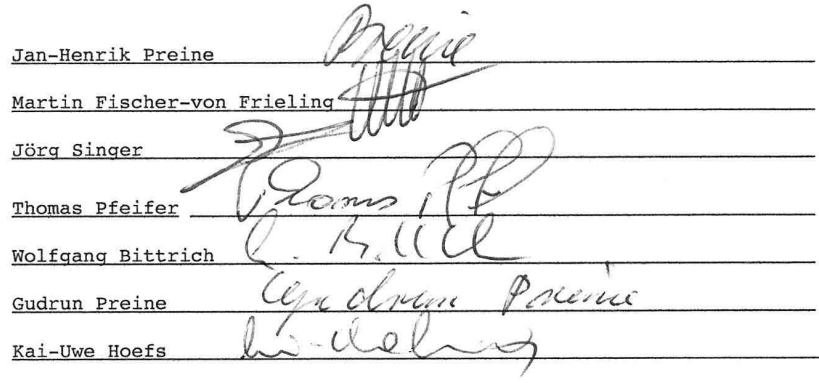 Jan-Henrik Preine Preine
Martin Fischer-von Frieling
Jörg Singer
Thomas Pfeifer Thomas
Wolfgang Bittrich
Gudrun Preine Gudrun Preine
Kai-Uwe Hoefs